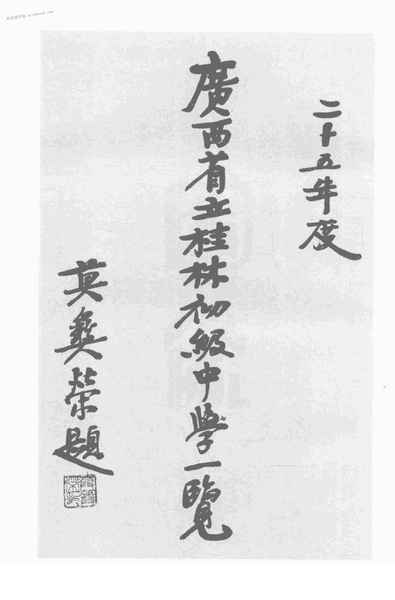 二十五年度
廣西省立桂林初級中學一覽
莫彝榮題